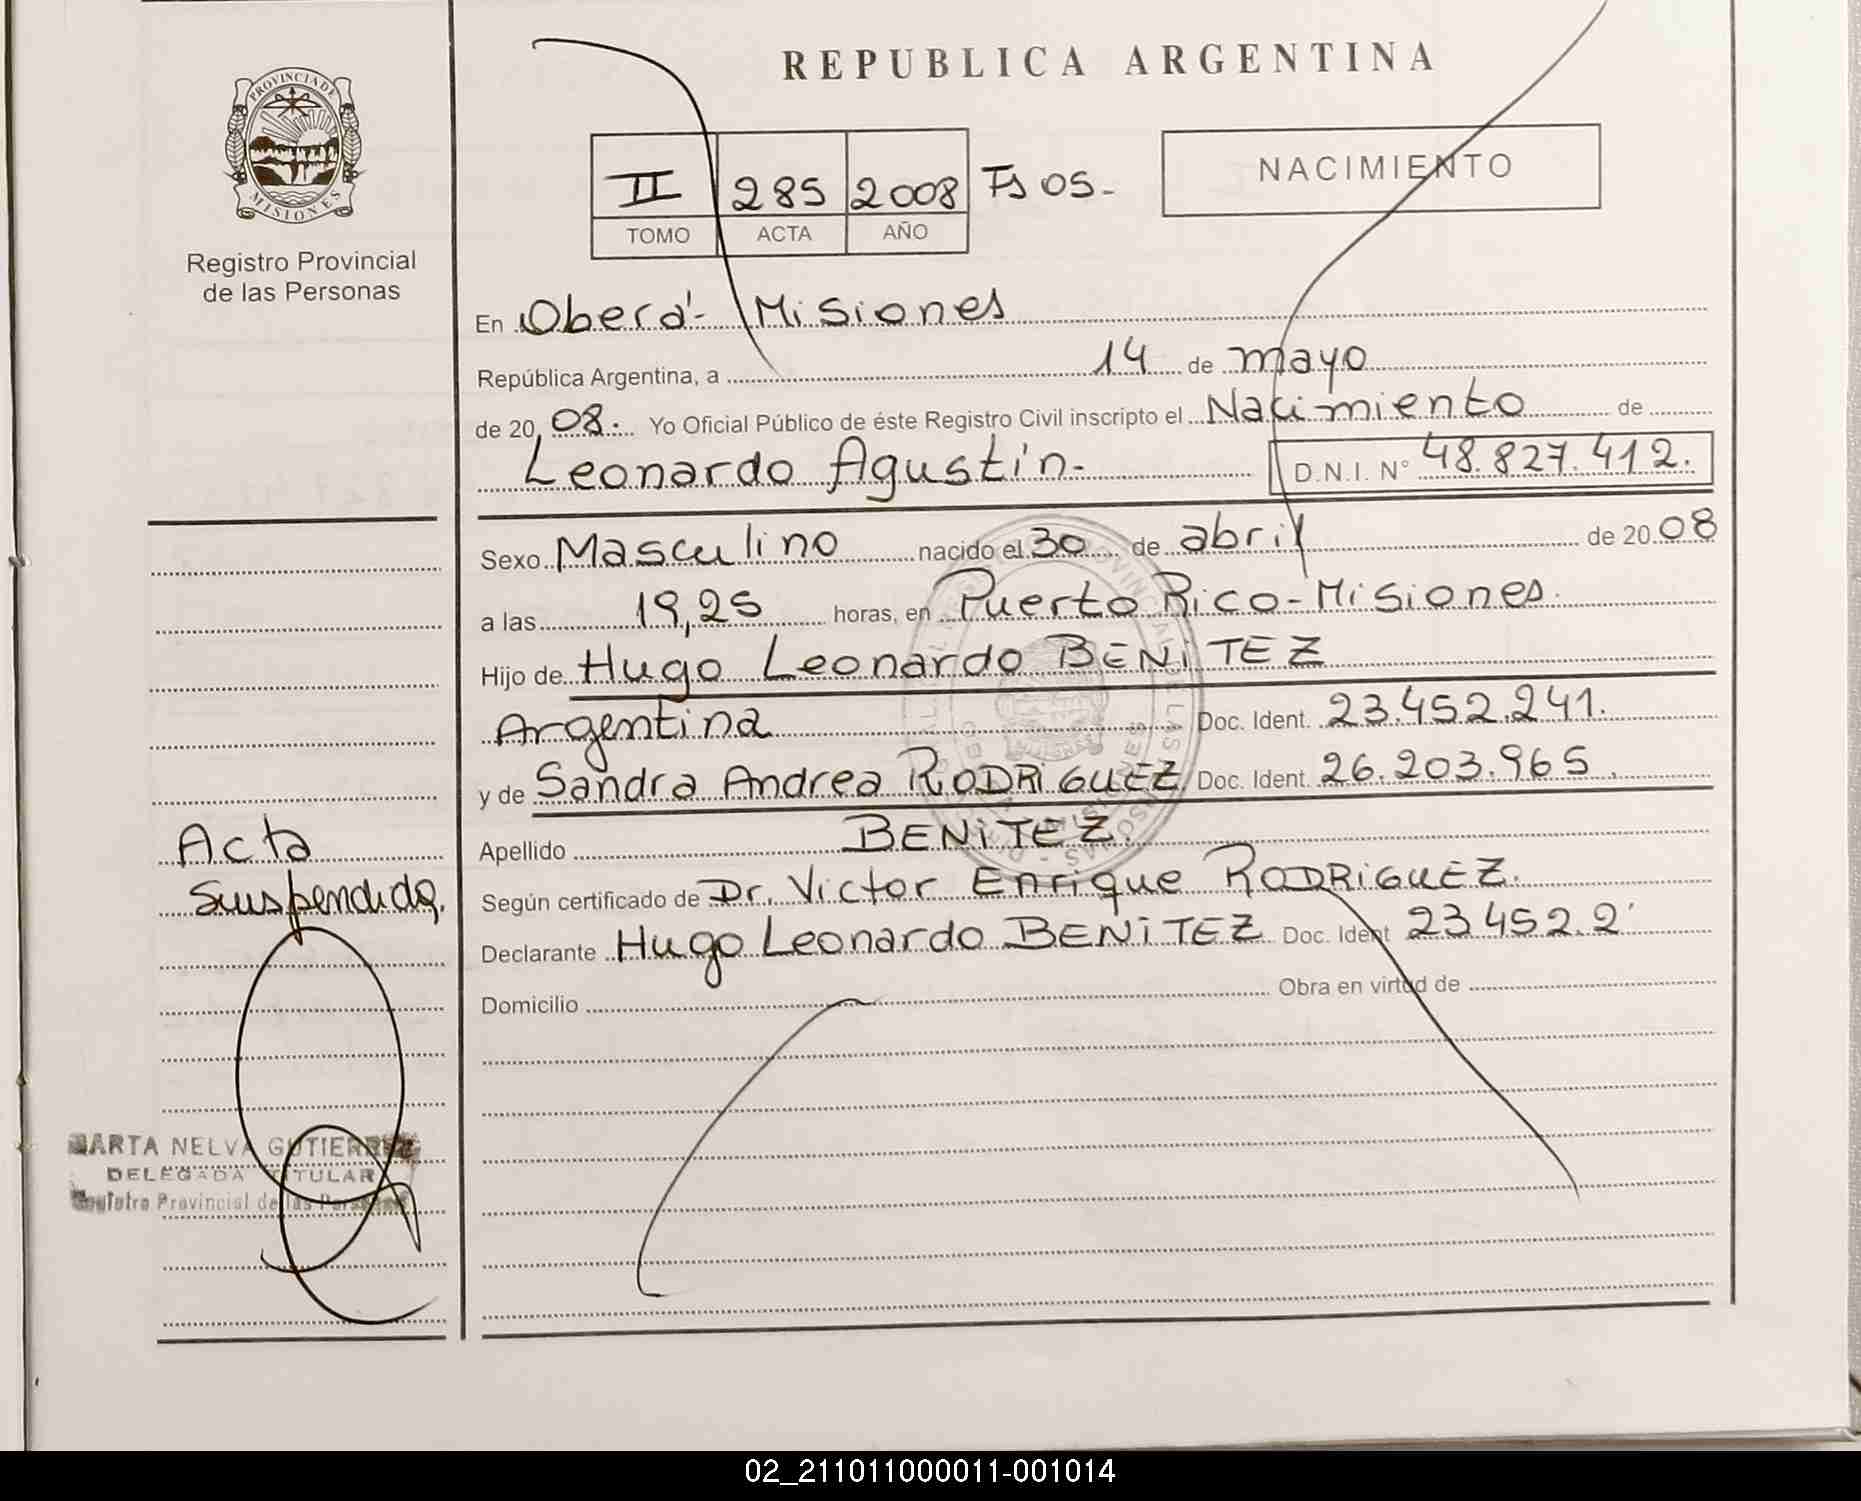 PROVINCIA DE
MISIONES
Registro Provincial
de las Personas
REPUBLICA ARGENTINA
II 285 2008 Fs 05.-
TOMO ACTA AÑO
NACIMIENTO
En Oberá - Misiones
República Argentina, a 14 de mayo
de 20 08. Yo Oficial Público de éste Registro Civil inscripto el Nacimiento de
Leonardo Agustín.- D.N.I. N° 48.827.412.
Sexo Masculino nacido el 30 de abril de 20 08
a las 19,25 horas, en Puerto Rico - Misiones.
Hijo de Hugo Leonardo BENITEZ
Argentina Doc. Ident. 23.452.241.
y de Sandra Andrea RODRIGUEZ Doc. Ident. 26.203.965.
Apellido BENITEZ.
Según certificado de Dr. Victor Enrique RODRIGUEZ.
Declarante Hugo Leonardo BENITEZ Doc. Ident 23 452.2
Domicilio Obra en virtud de
Acta
suspendida.
NELVA GUTIERREZ
DELEGADA TITULAR
Provincial de las
02_211011000011-001014